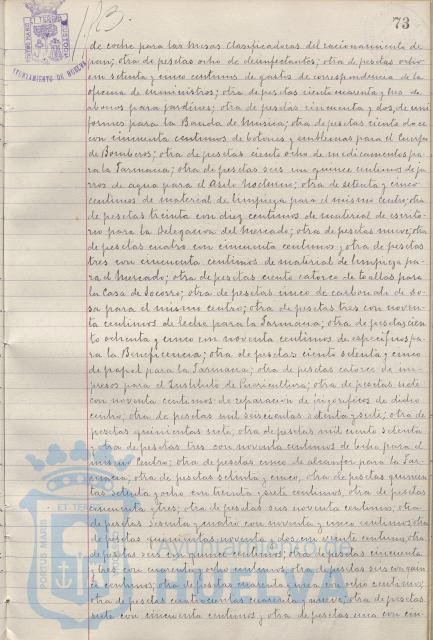 73
AYUNTAMIENTO DE HUELVA
de coche para las mesas clasificadoras del racionamiento de
pan; otra de pesetas ocho de desinfectantes; otra de pesetas ocho
con setenta y cinco centimos de gastos de correspondencia de la
oficina de suministros; otra de pesetas ciento cuarenta y tres de
abonos para jardines; otra de pesetas cincuenta y dos, de uni
formes para la Banda de Musica; otra de pesetas ciento doce
con cincuenta centimos de botones y emblemas para el Cuerpo
de Bomberos; otra de pesetas ciento ocho de medicamentos pa-
ra la Farmacia; otra de pesetas seis con quince centimos de ja-
rros de agua para el Asilo Nocturno; otra de setenta y cinco
centimos de material de limpieza para el mismo centro; otra
de pesetas treinta con diez centimos de material de escrito-
rio para la Delegacion del Mercado; otra de pesetas nueve; otra
de pesetas cuatro con cincuenta centimos y otra de pesetas
tres con cincuenta centimos de material de limpieza pa-
ra el Mercado; otra de pesetas ciento catorce de toallas para
la Casa de Socorro; otra de pesetas cinco de carbonato de so-
sa para el mismo centro; otra de pesetas tres con noven-
ta centimos de leche para la Farmacia; otra de pesetas cien
to ochenta y cinco con noventa centimos de especificos pa-
ra la Beneficencia; otra de pesetas ciento setenta y cinco
de papel para la Farmacia; otra de pesetas catorce de im-
presos para el Instituto de Puericultura; otra de pesetas siete
con noventa centimos de reparacion de frigorificos de dicho
centro; otra de pesetas mil seiscientas setenta y siete; otra de
pesetas quinientas siete, otra de pesetas mil ciento setenta
y otra de pesetas tres con noventa centimos de leche para el
mismo centro; otra de pesetas cinco de alcanfor para la Far-
macia; otra de pesetas setenta y cinco, otra de pesetas quinien-
tas setenta y ocho con treinta y siete centimos, otra de pesetas
cincuenta y tres; otra de pesetas seis noventa centimos, otra
de pesetas sesenta y cuatro con noventa y cinco centimos otra
de pesetas quinientas noventa y dos con veinte centimos, otra
de pesetas seis con quince centimos, otra de pesetas cincuenta
y tres con cuarenta y ocho centimos, otra de pesetas seis con noven
ta centimos, otra de pesetas cuarenta una con ocho centimos;
otra de pesetas cuatrocientas cuarenta y nueve, otra de pesetas
siete con cincuenta centimos y otra de pesetas una con cin-
Ayuntamiento de
HUELVA
PORTUS MARIS
ET TERRAE